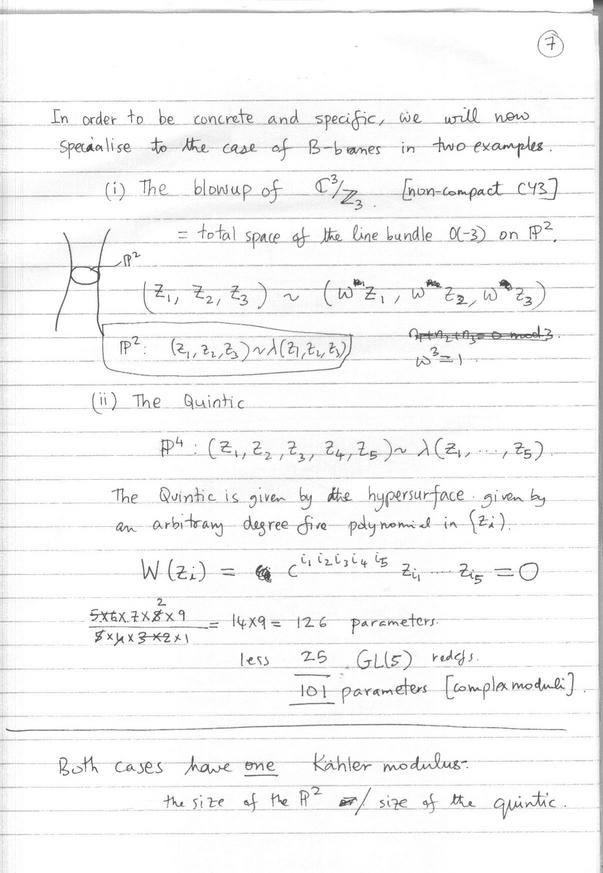 7
In order to be concrete and specific, we will now
specialise to the case of B-branes in two examples.
(i) The blowup of ℂ³/ℤ₃. [non-compact CY3]
= total space of the line bundle O(-3) on ℙ².
ℙ²
(Z₁, Z₂, Z₃) ~ (ωZ₁, ωZ₂, ωZ₃)
ℙ²: (Z₁, Z₂, Z₃) ~ λ(Z₁, Z₂, Z₃)
n₁+n₂+n₃=0 mod 3.
ω³=1
(ii) The Quintic
ℙ⁴ : (Z₁, Z₂, Z₃, Z₄, Z₅) ~ λ(Z₁, ..., Z₅)
The Quintic is given by the hypersurface given by
an arbitrary degree five polynomial in {Zᵢ}.
W(Zᵢ) = C^{i₁ i₂ i₃ i₄ i₅} Z_{i₁} ... Z_{i₅} = 0
2
5×6×7×8×9 / 5×4×3×2×1 = 14×9 = 126 parameters.
less 25 GL(5) redefs.
101 parameters [complex moduli].
Both cases have one Kähler modulus.
the size of the ℙ² / size of the quintic.